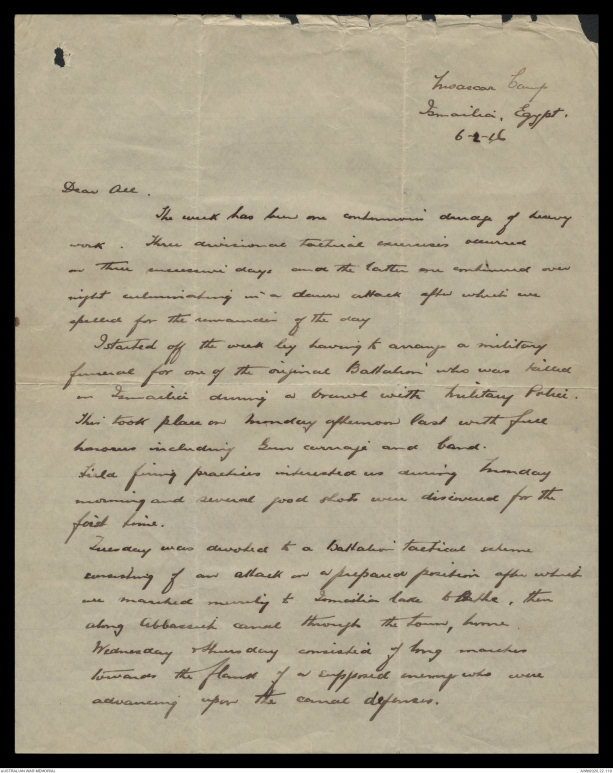 Moascar Camp
Ismailia, Egypt.
6-2-16
Dear All.
The week has been one continuous deluge of heavy
work. Three divisional tactical exercises occurred
on three successive days and the latter one continued over
night culminating in a dawn attack after which we
spelled for the remainder of the day
I started off the week by having to arrange a military
funeral for one of the original Battalion who was killed
in Ismailia during a brawl with Military Police.
This took place on Monday afternoon last with full
honours including Gun carriage and band.
Field firing practices interested us during Monday
morning and several good shots were discovered for the
first time.
Tuesday was devoted to a Battalion tactical scheme
consisting of an attack on a prepared position after which
we marched merrily to Ismailia lake to bathe, then
along Abbassieh canal through the town, home.
Wednesday & Thursday consisted of long marches
towards the flank of a supposed enemy who were
advancing upon the canal defenses.
AUSTRALIAN WAR MEMORIAL